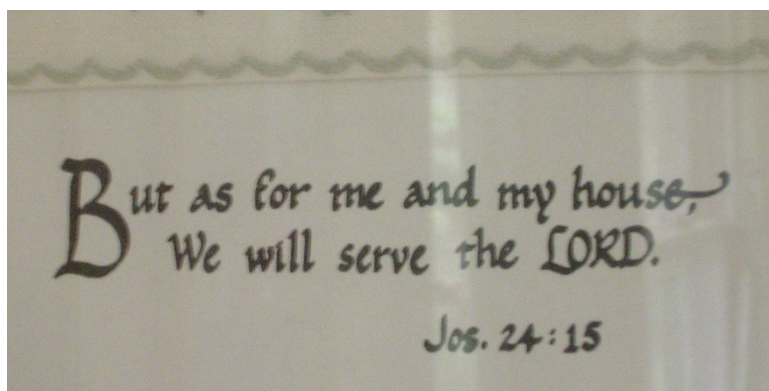 But as for me and my house,
We will serve the LORD.
Jos. 24:15